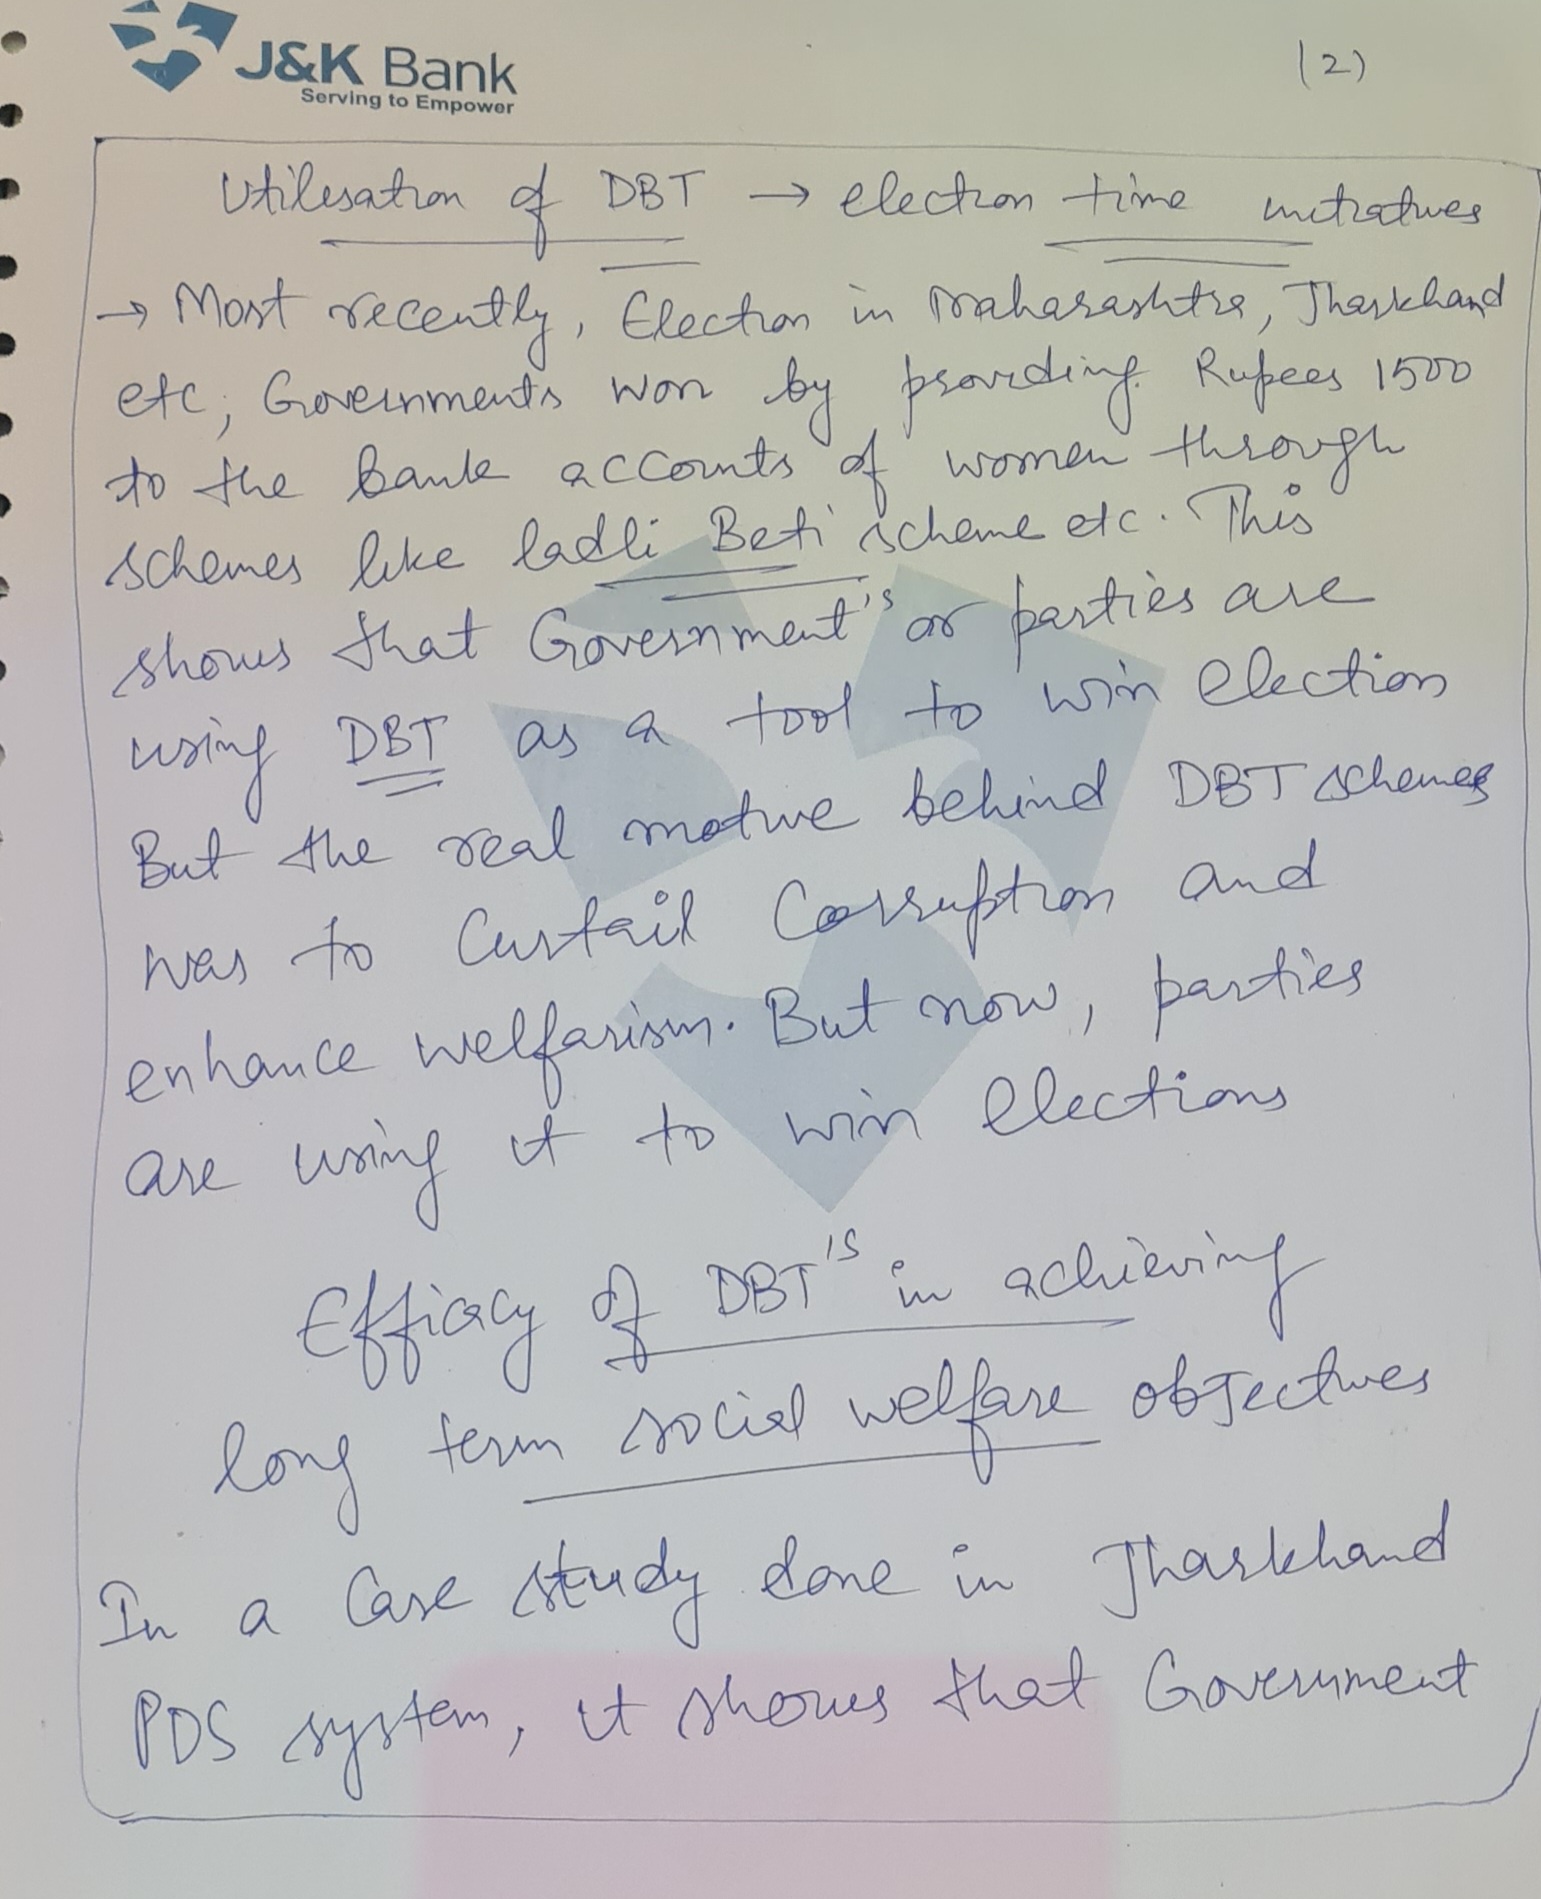 J&K Bank
Serving to Empower
(2)
Utilisation of DBT → election time initiatives
→ Most recently, Election in Maharashtra, Jharkhand
etc, Governments won by providing Rupees 1500
to the bank accounts of women through
schemes like ladli Beti scheme etc. This
shows that Government's or parties are
using DBT as a tool to win election
But the real motive behind DBT schemes
was to Curtail Corruption and
enhance welfarism. But now, parties
are using it to win elections
Efficacy of DBT's in achieving
long term social welfare objectives
In a Case study done in Jharkhand
PDS system, it shows that Government